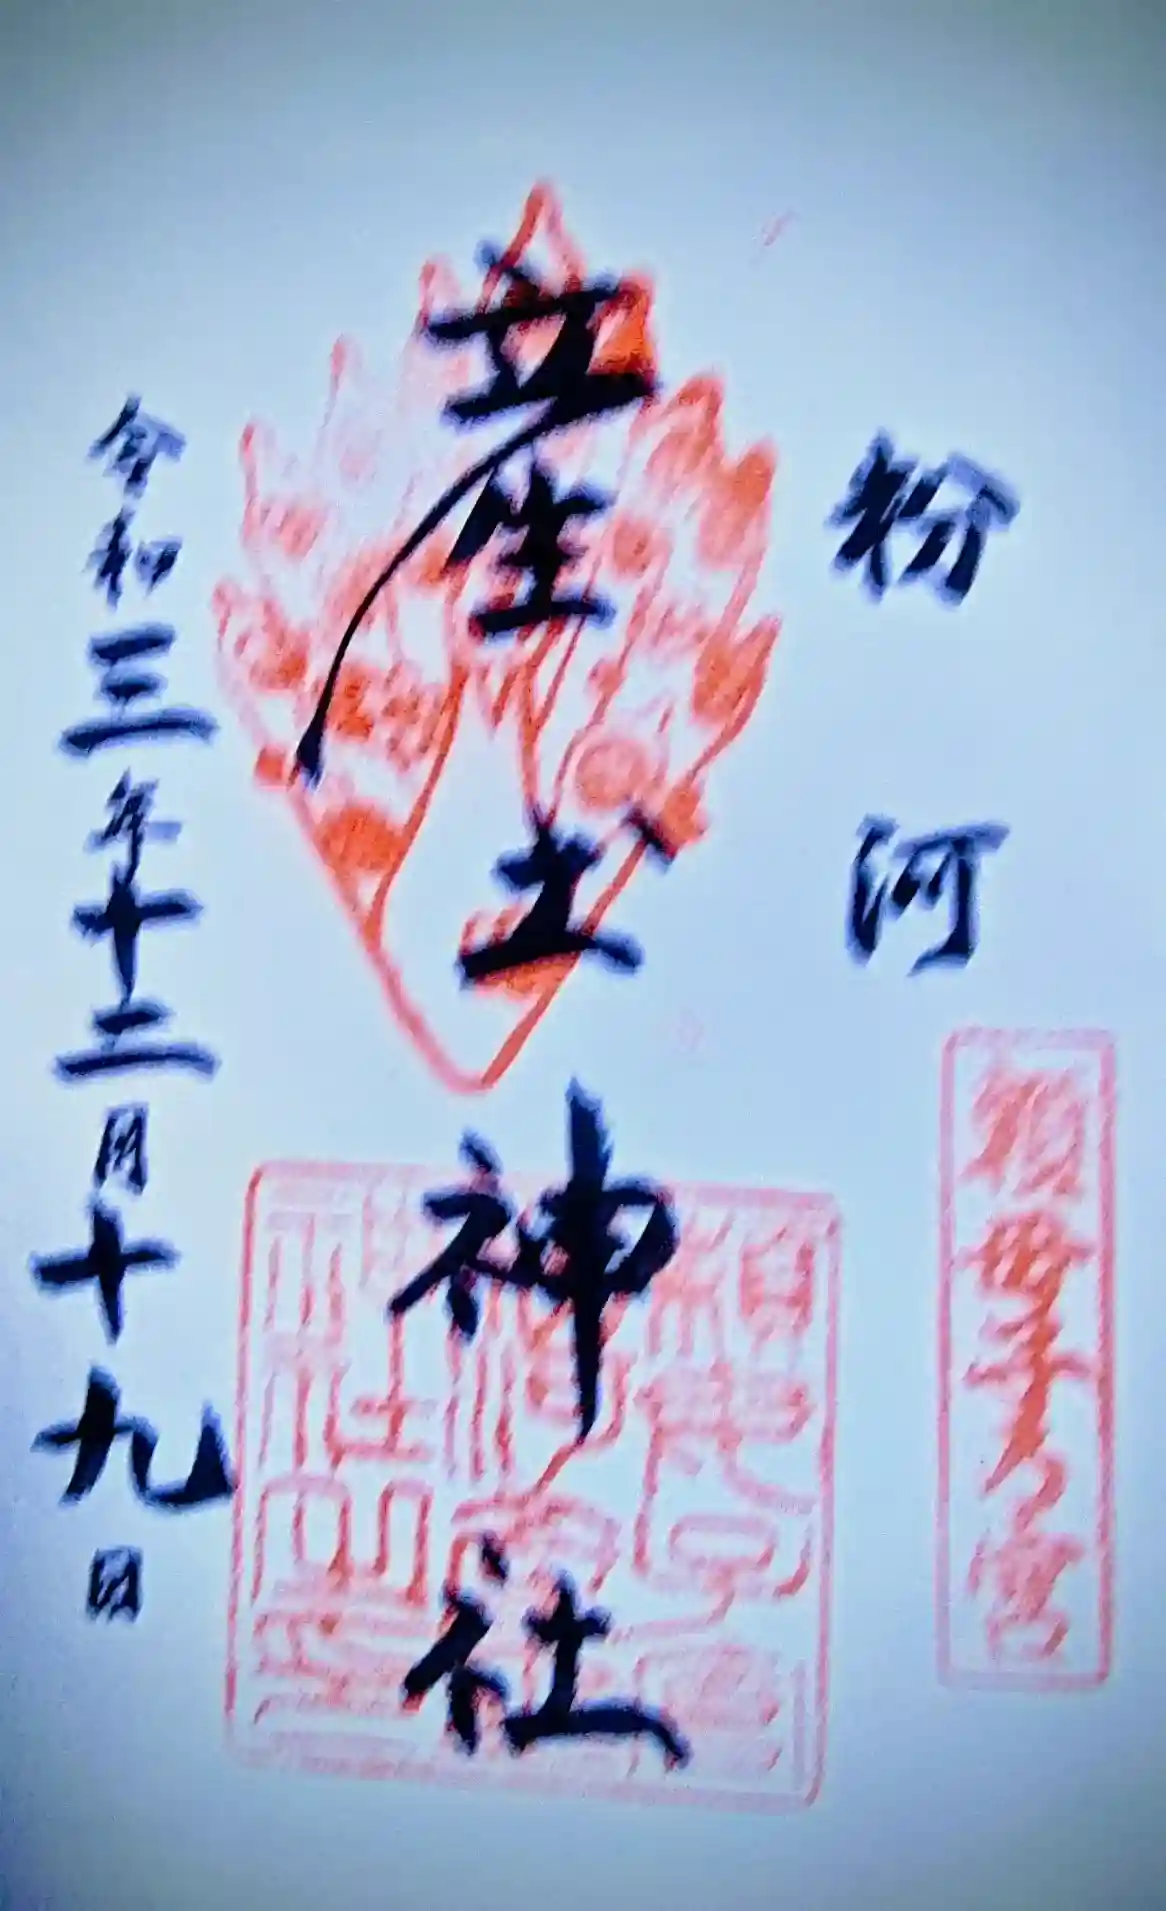 粉河
産土神社
令和三年十二月十九日